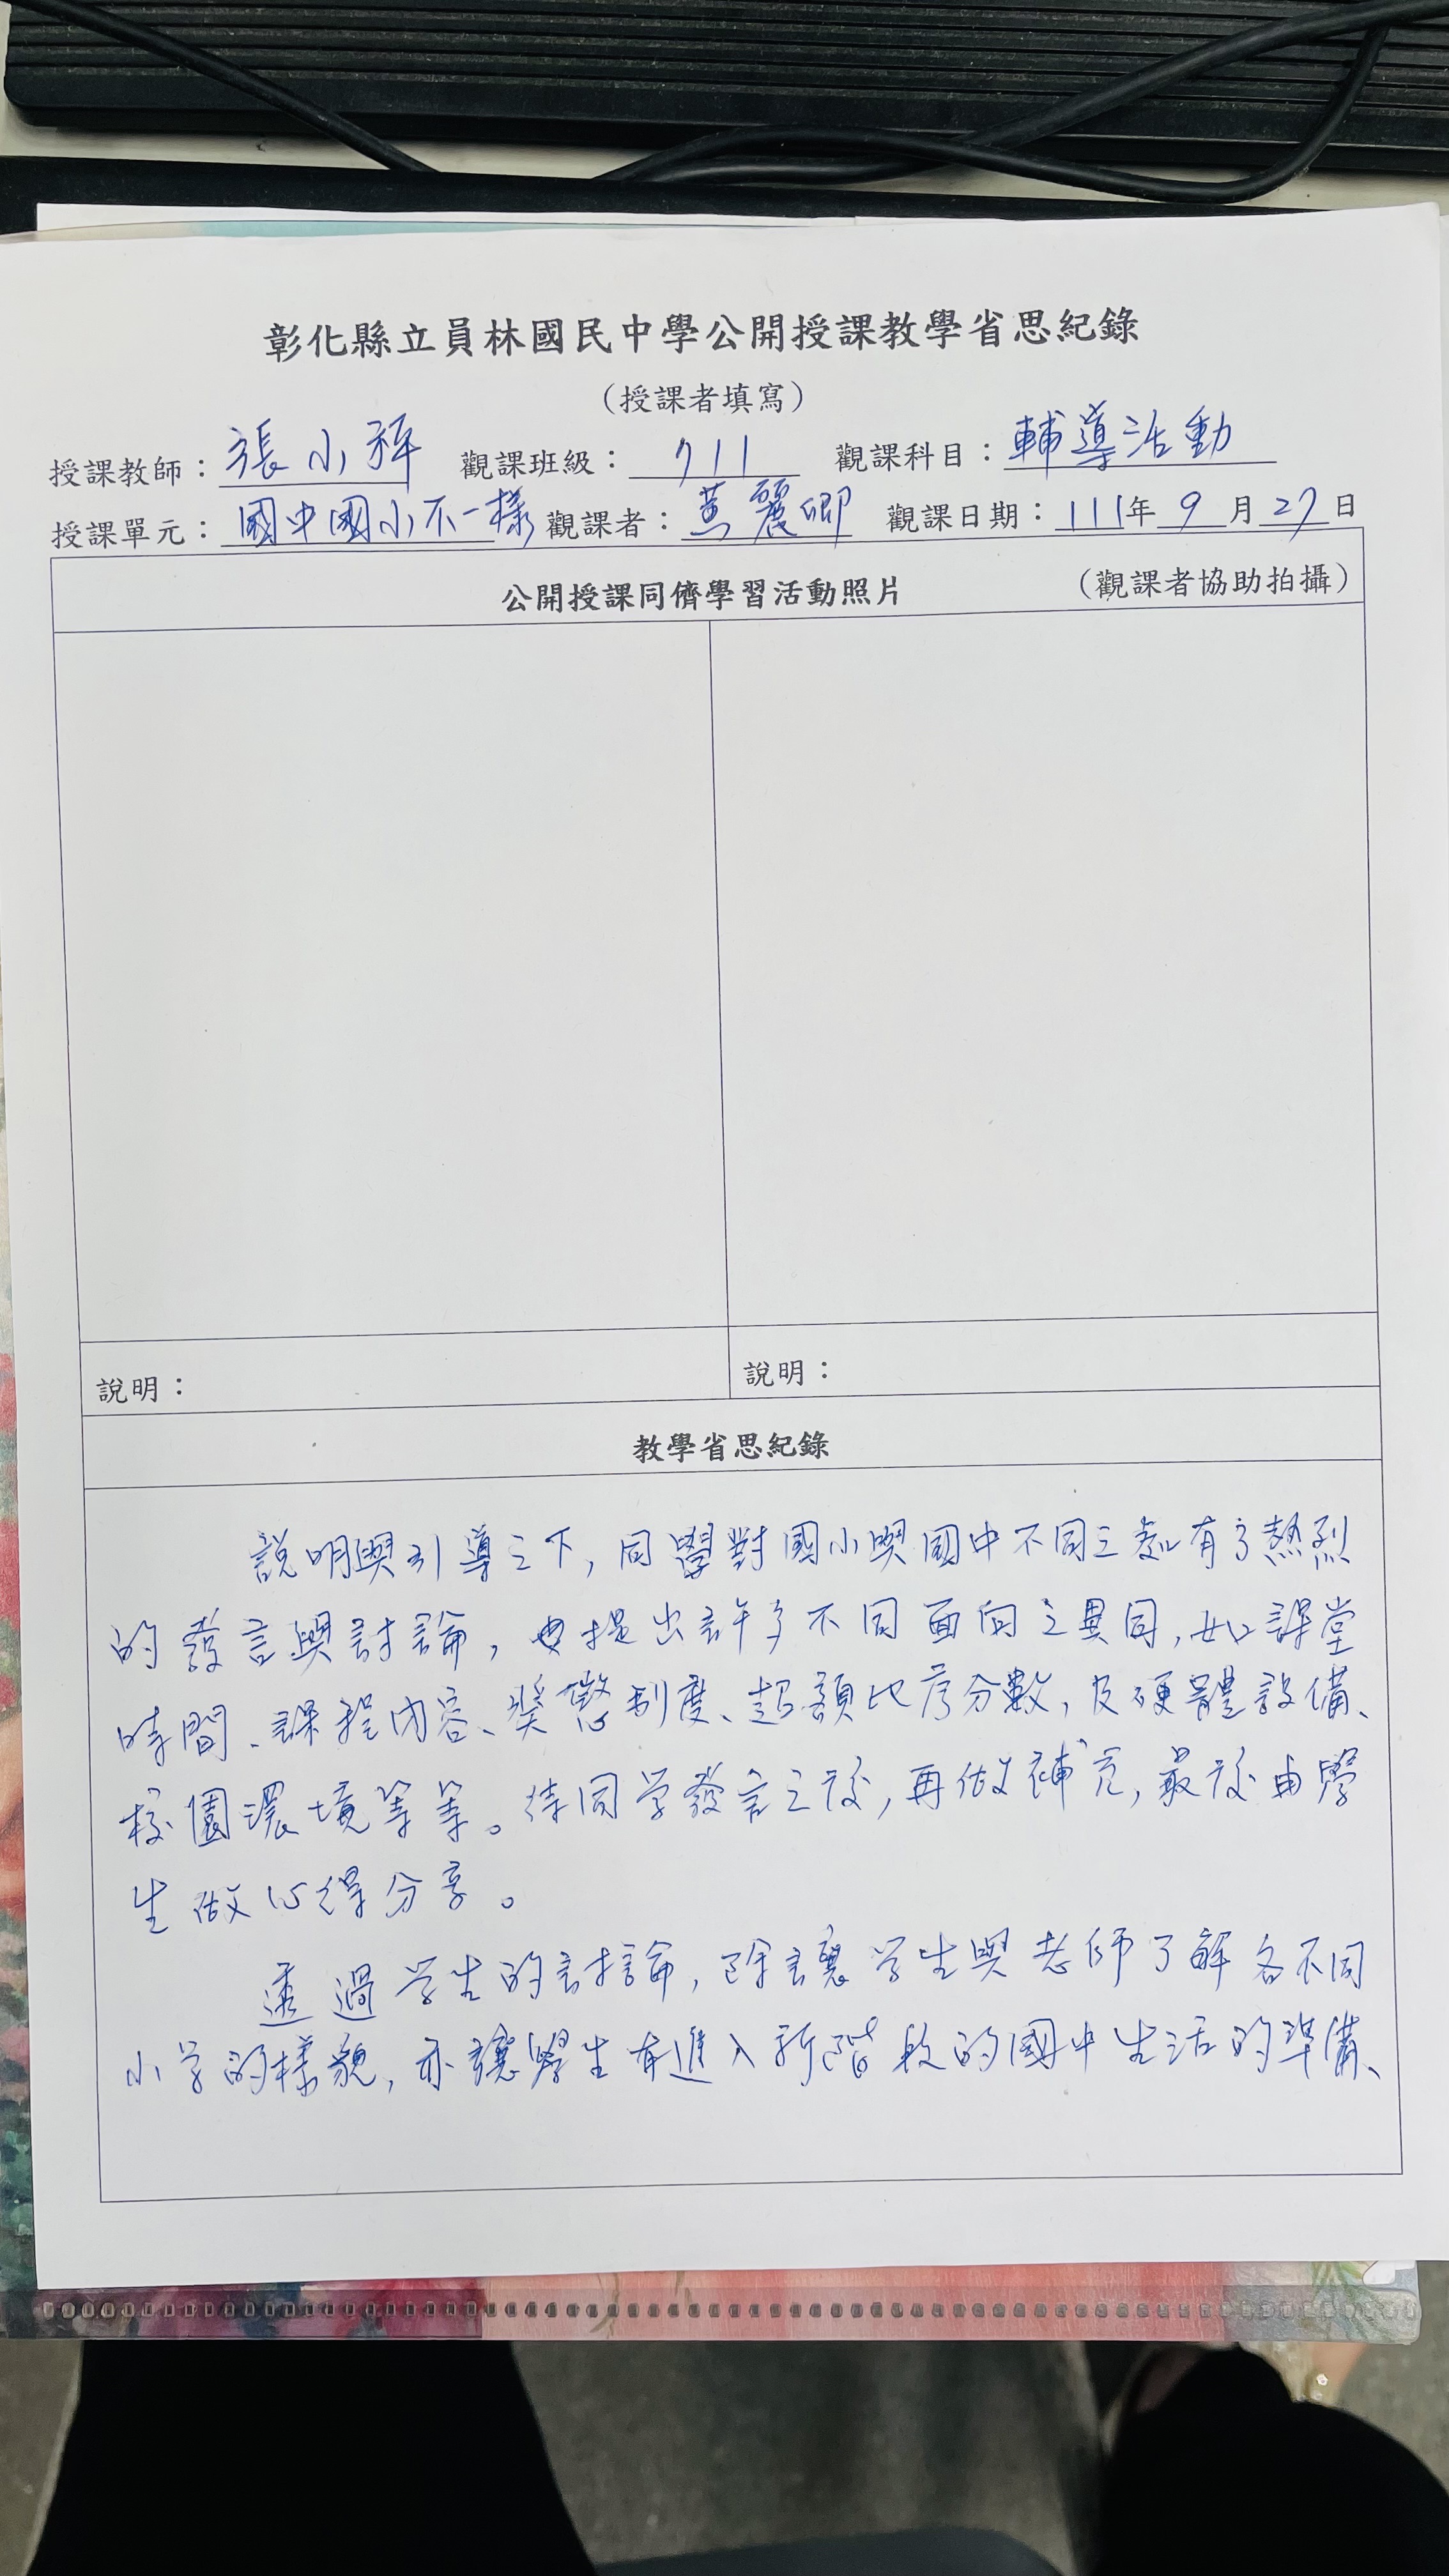 彰化縣立員林國民中學公開授課教學省思紀錄
(授課者填寫)
授課教師：張小 觀課班級：711 觀課科目：輔導活動
授課單元：國中國小不一樣 觀課者：麗卿 觀課日期：111年9月27日
公開授課同儕學習活動照片 (觀課者協助拍攝)
說明： 說明：
教學省思紀錄
說明與引導之下，同學對國小與國中不同之處有了熱烈
的發言與討論，也提出許多不同面向之異同，如課堂
時間、課程內容、獎懲制度、超額比序分數，及硬體設備、
校園環境等等。待同学發言之後，再做補充，最後由學
生做心得分享。
透過学生的討論，除讓学生與老師了解各不同
小学的樣貌，亦讓學生有進入新階段的國中生活的準備、